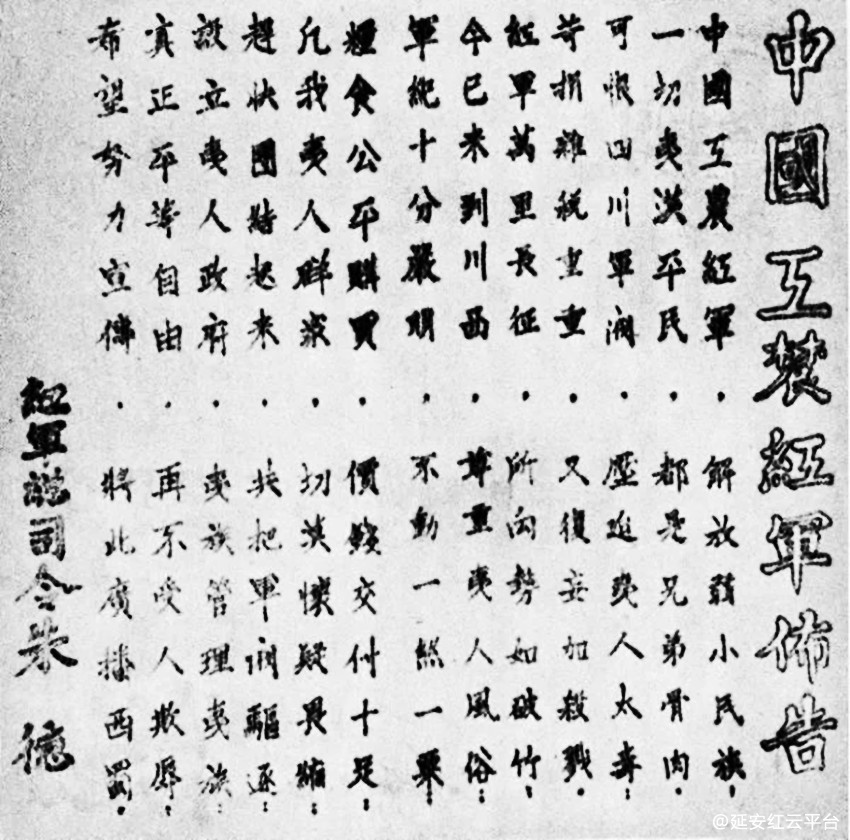 中國工農紅軍佈告
中國工農紅軍．解放弱小民族：
一切夷漢平民．都是兄弟骨肉．
可恨四川軍閥．壓迫夷人太毒：
苛捐雜稅重重．又復妄加殺戮．
紅軍萬里長征．所向勢如破竹：
今已來到川西．尊重夷人風俗：
軍紀十分嚴明．不動一絲一粟：
糧食公平購買．價錢交付十足：
凡我夷人群衆．切莫懷疑畏縮：
趕快團結起來．共把軍閥驅逐：
設立夷人政府．夷族管理夷族：
真正平等自由．再不受人欺辱：
希望努力宣傳．將此廣播西蜀．
紅軍總司令朱德
@延安红云平台